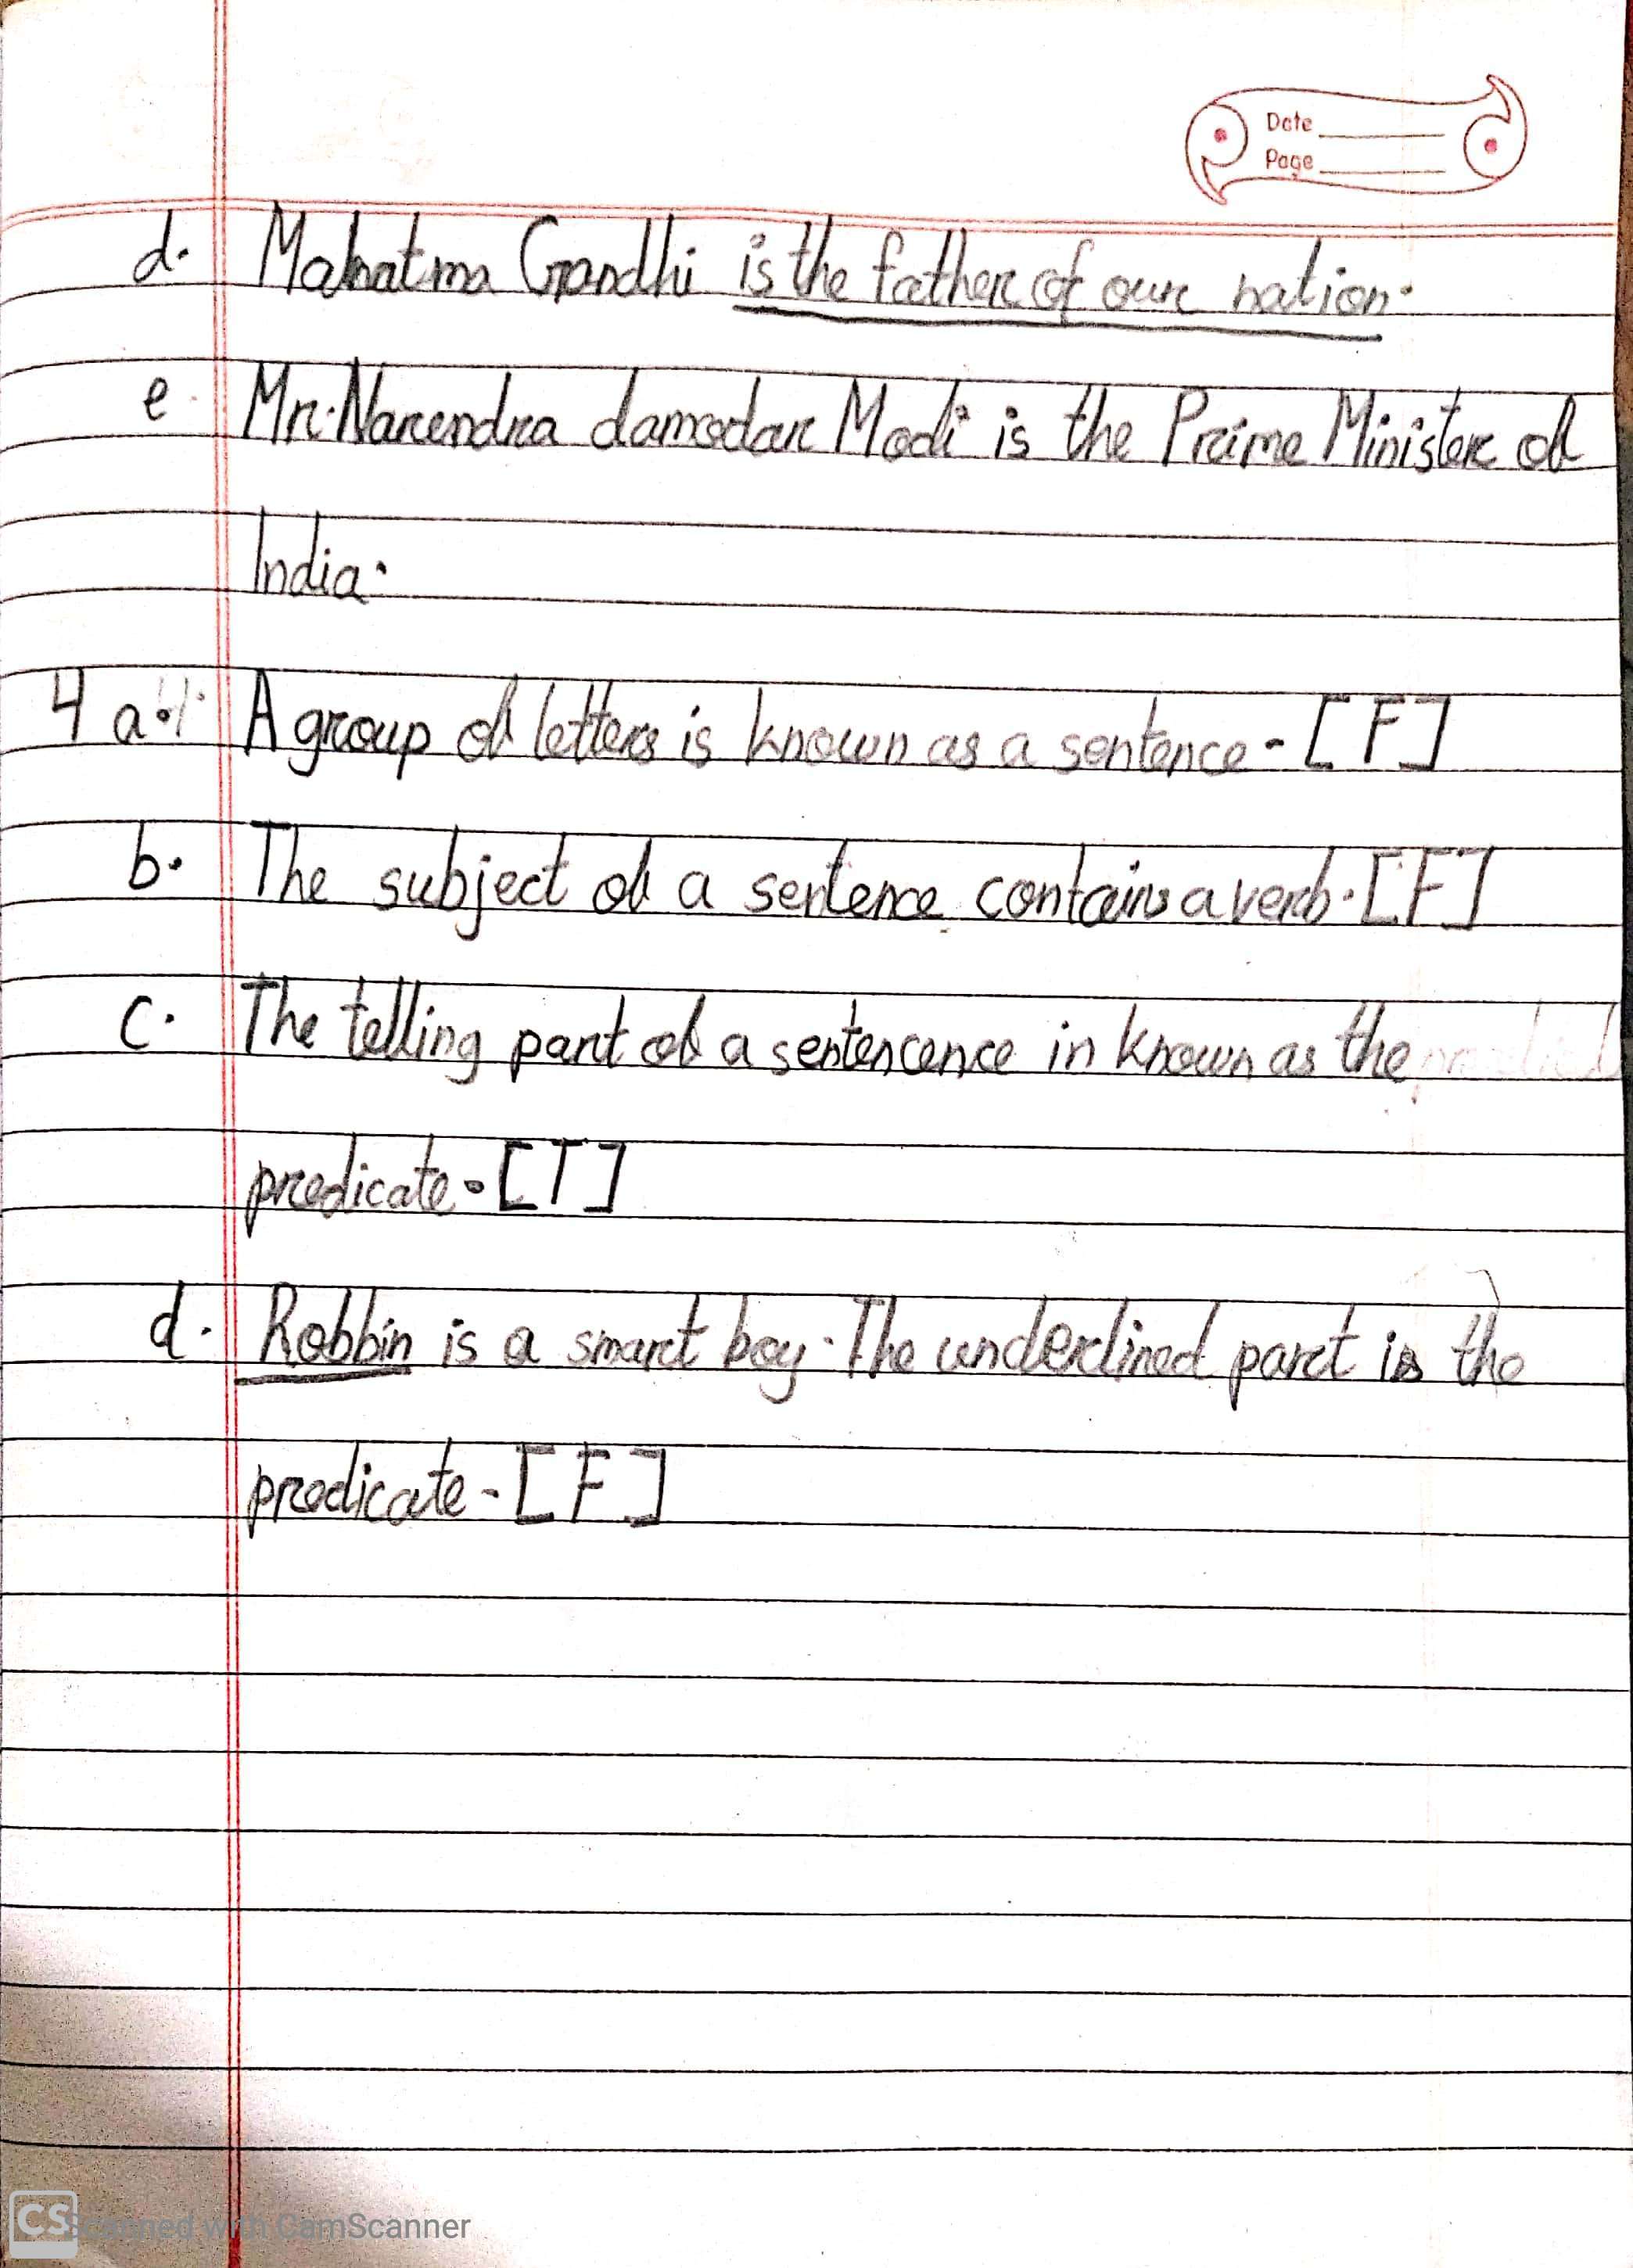 Date
Page
d. Mahatma Gandhi is the father of our nation.
e. Mr. Narendra damodar Modi is the Prime Minister of
India.
4 a. A group of letters is known as a sentence. [F]
b. The subject of a sentence contains a verb. [F]
c. The telling part of a sentencence in known as the
predicate. [T]
d. Robbin is a smart boy. The underlined part is the
predicate. [F]
CS Scanned with CamScanner